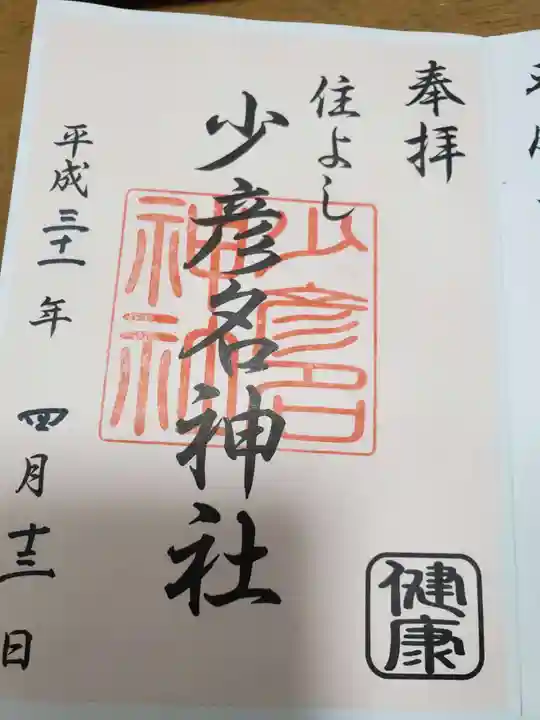 奉拝
住よし
少彦名神社
少彦名
神社
平成三十一年
四月十三日
健康